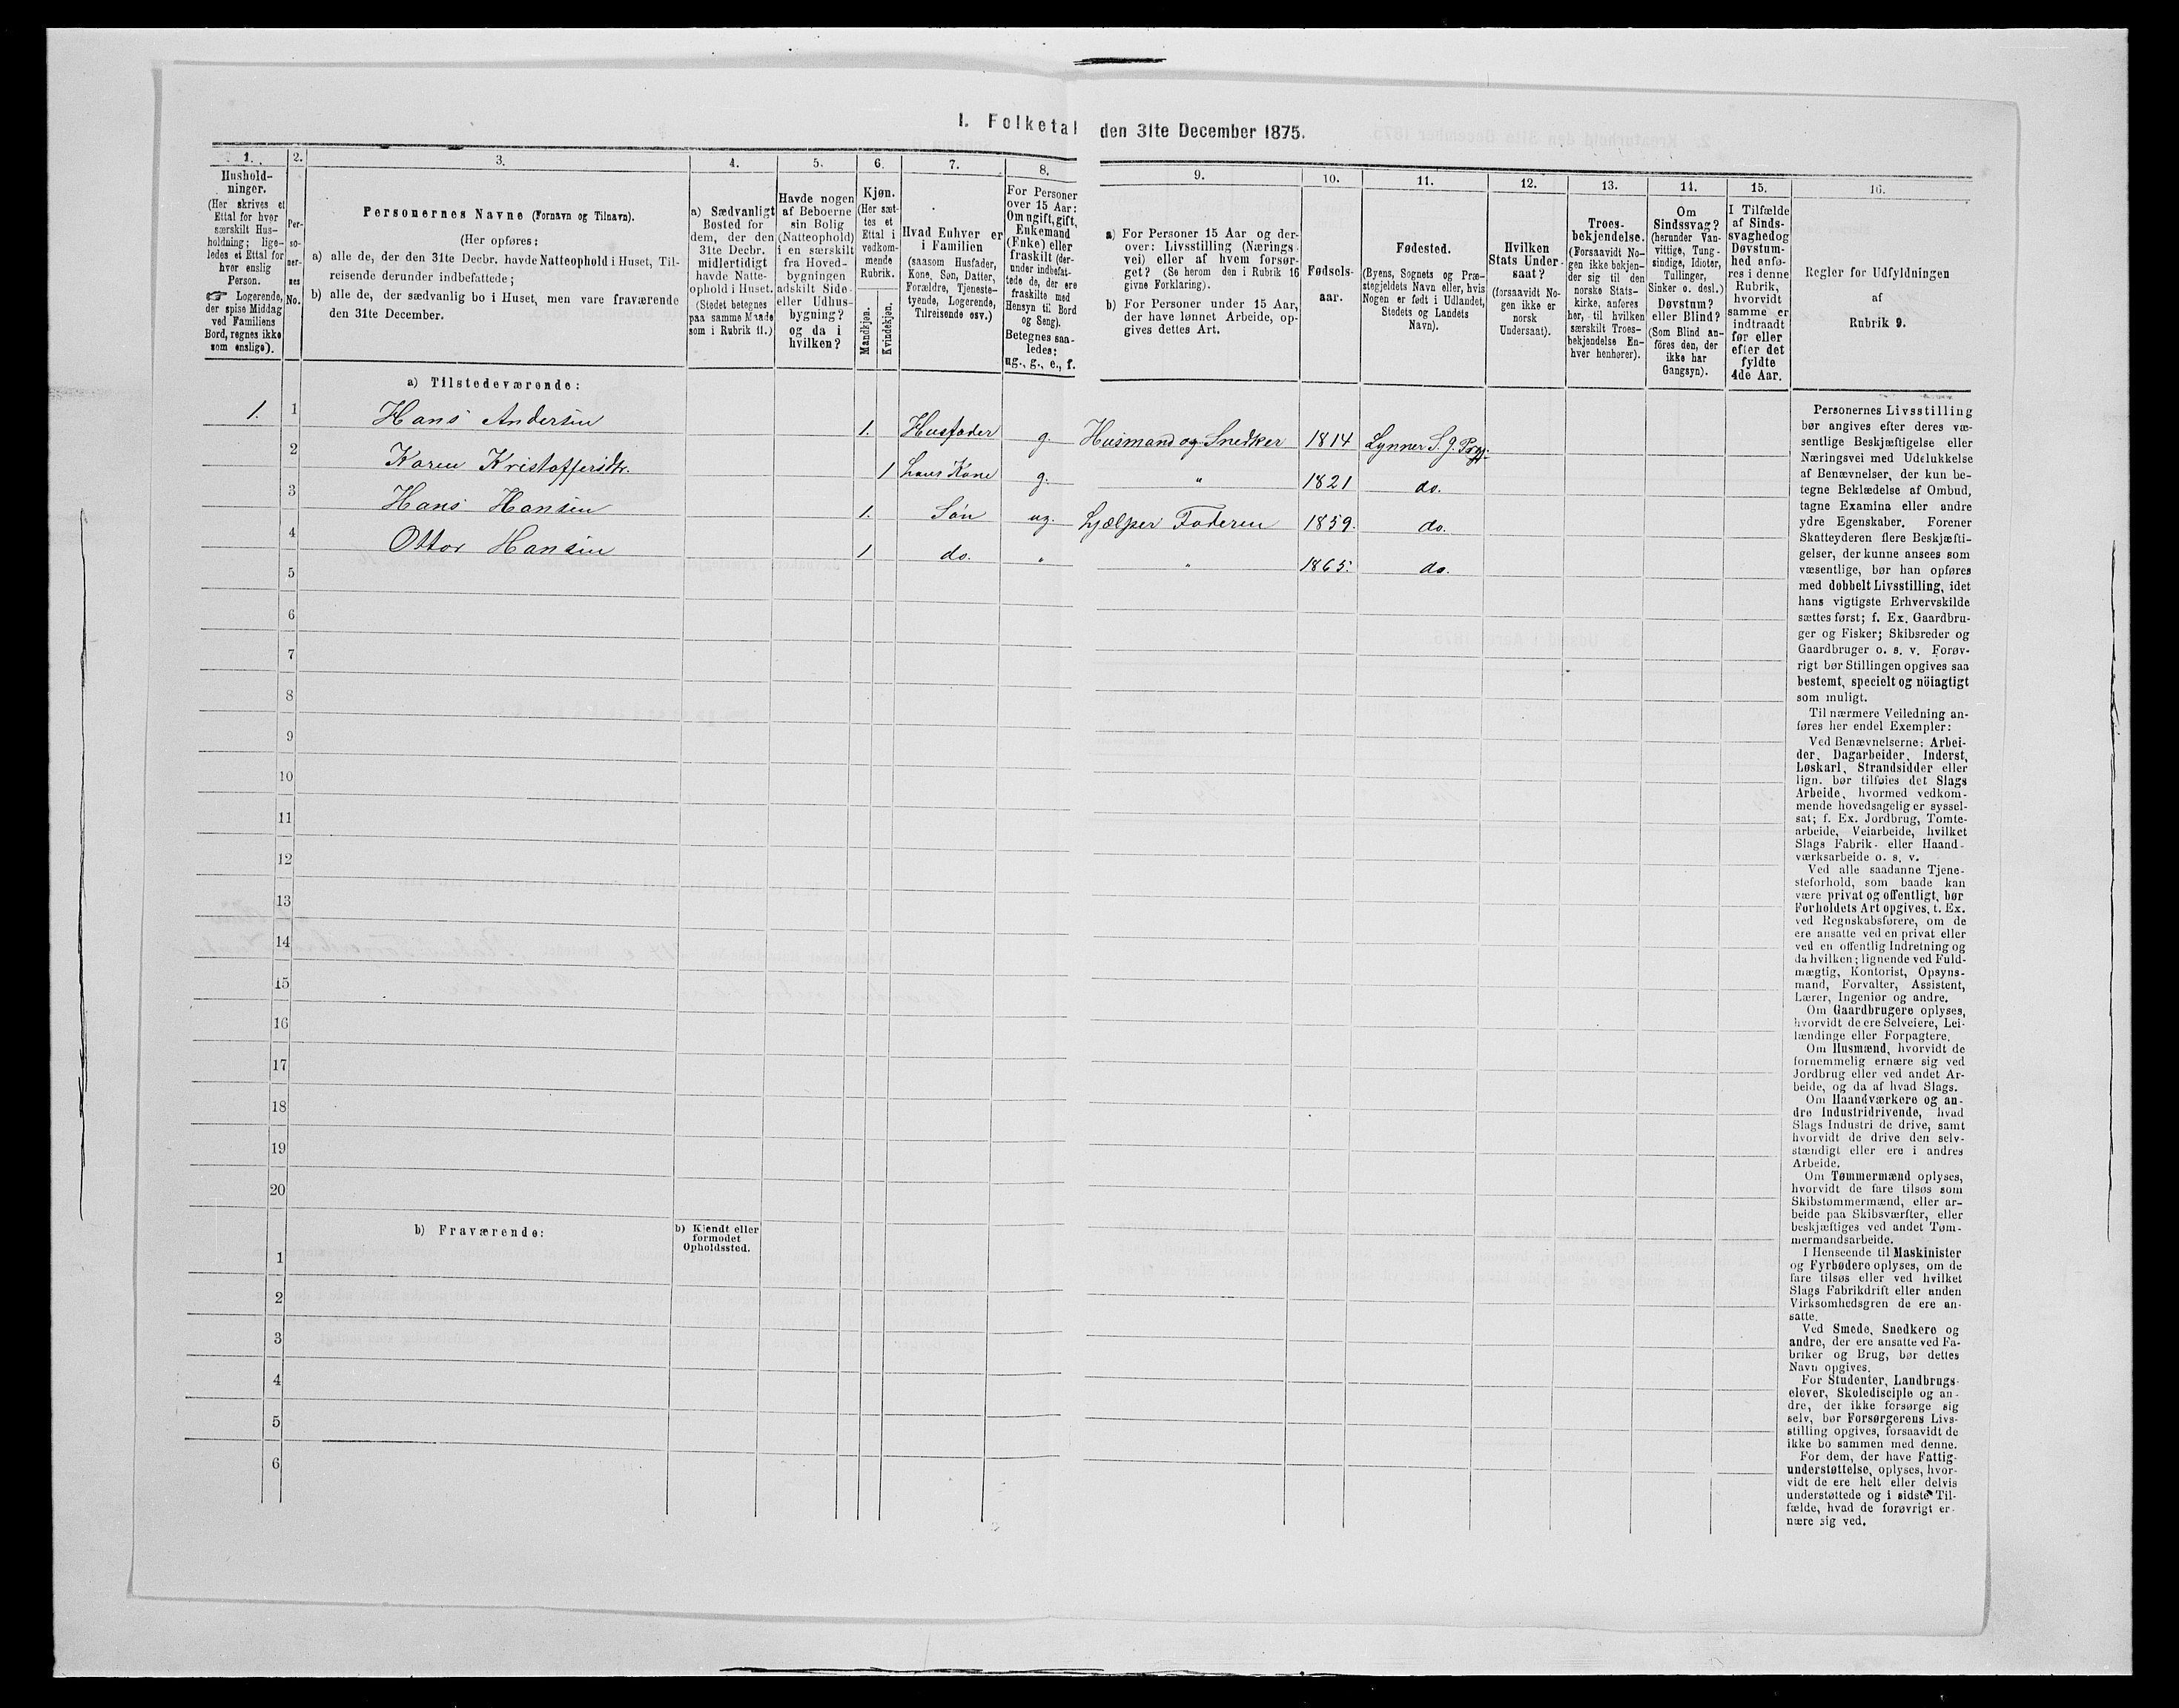 I. Folketal den 31te December 1875.
1.
Hushold-
ninger.
(Her skrives et
Ettal for hver
særskilt Hus-
holdning; lige-
ledes et Ettal for
hver enslig
Person.
☞ Logerende,
der spise Middag
ved Familiens
Bord, regnes ikke
som enslige).
2.
Per-
so-
ner-
nes
No.
3.
Personernes Navne (Fornavn og Tilnavn).
(Her opføres:
a) alle de, der den 31te Decbr. havde Natteophold i Huset, Til-
reisende derunder indbefattede;
b) alle de, der sædvanlig bo i Huset, men vare fraværende
den 31te December.
4.
a) Sædvanligt
Bosted for
dem, der den
31te Decbr.
midlertidigt
havde Natte-
ophold i Huset.
(Stedet betegnes
paa samme Maade
som i Rubrik 11.)
5.
Havde nogen
af Beboerne
sin Bolig
(Natteophold)
i en særskilt
fra Hoved-
bygningen
adskilt Side-
eller Udhus-
bygning?
og da i
hvilken?
6.
Kjøn.
(Her sæt-
tes et
Ettal i
vedkom-
mende
Rubrik.
Mandkjøn.
Kvindekjøn.
7.
Hvad Enhver er
i Familien
(saasom Husfader,
Kone, Søn, Datter,
Forældre, Tjeneste-
tyende, Logerende,
Tilreisende osv.)
8.
For Personer
over 15 Aar:
Om ugift, gift,
Enkemand
(Enke) eller
fraskilt (der-
under indbefat-
tede de, der ere
fraskilte med
Hensyn til Bord
og Seng).
Betegnes saa-
ledes:
ug., g., e., f.
9.
a) For Personer 15 Aar og der-
over: Livsstilling (Nærings-
vei) eller af hvem forsør-
get? (Se herom den i Rubrik 16
givne Forklaring).
b) For Personer under 15 Aar,
der have lønnet Arbeide, op-
gives dettes Art.
10.
Fødsels-
aar.
11.
Fødested.
(Byens, Sognets og Præ-
stegjeldets Navn eller, hvis
Nogen er født i Udlandet,
Stedets og Landets
Navn).
12.
Hvilken
Stats Under-
saat?
(forsaavidt No-
gen ikke er
norsk
Undersaat).
13.
Troes-
bekjendelse.
(Forsaavidt No-
gen ikke bekjen-
der sig til den
norske Stats-
kirke, anføres
her, til hvilken
særskilt Troes-
bekjendelse En-
hver henhører).
14.
Om
Sindssvag?
(herunder Van-
vittige, Tung-
sindige, Idioter,
Tullinger,
Sinker o. desl.)
Døvstum?
eller Blind?
(Som Blind an-
føres den, der
ikke har
Gangsyn).
15.
I Tilfælde
af Sinds-
svaghed og
Døvstum-
hed anfø-
res i denne
Rubrik,
hvorvidt
samme er
indtraadt
før eller
efter det
fyldte
4de Aar.
16.
Regler for Udfyldningen
af
Rubrik 9.
a) Tilstedeværende:
1. 1 Hans Andersen 1. Husfader g. Husmand og Snedker 1814 Lynner S. J. Prgj.
2 Karen Kristoffersdtr. 1 hans Kone g. " 1821 do.
3 Hans Hansen 1. Søn ug. hjælper Faderen 1859. do.
4 Ottar Hansen 1 do. " " 1865. do.
5
6
7
8
9
10
11
12
13
14
15
16
17
18
19
20
b) Fraværende:
b) Kjendt eller
formodet
Opholdssted.
1
2
3
4
5
6
Personernes Livsstilling
bør angives efter deres væ-
sentlige Beskjæftigelse eller
Næringsvei med Udelukkelse
af Benævnelser, der kun be-
tegne Beklædelse af Ombud,
tagne Examina eller andre
ydre Egenskaber. Forener
Skatteyderen flere Beskjæfti-
gelser, der kunne ansees som
væsentlige, bør han opføres
med dobbelt Livsstilling, idet
hans vigtigste Erhvervskilde
sættes først; f. Ex. Gaardbru-
ger og Fisker; Skibsreder og
Gaardbruger o. s. v. Forøv-
rigt bør Stillingen opgives saa
bestemt, specielt og nöiagtigt
som muligt.
Til nærmere Veiledning an-
føres her endel Exempler:
Ved Benævnelserne: Arbei-
der, Dagarbeider, Inderst,
Løskarl, Strandsidder eller
lign. bør tilføies det Slags
Arbeide, hvormed vedkom-
mende hovedsagelig er syssel-
sat; f. Ex. Jordbrug, Tomte-
arbeide, Veiarbeide, hvilket
Slags Fabrik- eller Haand-
værksarbeide o. s. v.
Ved alle saadanne Tjene-
steforhold, som baade kan
være privat og offentligt, bør
Forholdets Art opgives, t. Ex.
ved Regnskabsførere, om de
ere ansatte ved en privat eller
ved en offentlig Indretning og
da hvilken; lignende ved Fuld-
mægtig, Kontorist, Opsyns-
mand, Forvalter, Assistent,
Lærer, Ingeniør og andre.
Om Gaardbrugere oplyses,
hvorvidt de ere Selveiere, Lei-
lændinge eller Forpagtere.
Om Husmænd, hvorvidt de
fornemmelig ernære sig ved
Jordbrug eller ved andet Ar-
beide, og da af hvad Slags.
Om Haandværkere og an-
dre Industridrivende, hvad
Slags Industri de drive, samt
hvorvidt de drive den selv-
stændigt eller ere i andres
Arbeide.
Om Tømmermænd oplyses,
hvorvidt de fare tilsøs som
Skibstømmermænd, eller ar-
beide paa Skibsværfter, eller
beskjæftiges ved andet Tøm-
mermandsarbeide.
I Henseende til Maskinister
og Fyrbødere oplyses, om de
fare tilsøs eller ved hvilket
Slags Fabrikdrift eller anden
Virksomhedsgren de ere an-
satte.
Ved Smede, Snedkere og
andre, der ere ansatte ved Fa-
briker og Brug, bør dettes
Navn opgives.
For Studenter, Landbrugs-
elever, Skoledisciple og an-
dre, der ikke forsørge sig
selv, bør Forsørgerens Livs-
stilling opgives, forsaavidt de
ikke bo sammen med denne.
For dem, der have Fattig-
understøttelse, oplyses, hvor-
vidt de ere helt eller delvis
understøttede og i sidste Til-
fælde, hvad de forøvrigt er-
nære sig ved.